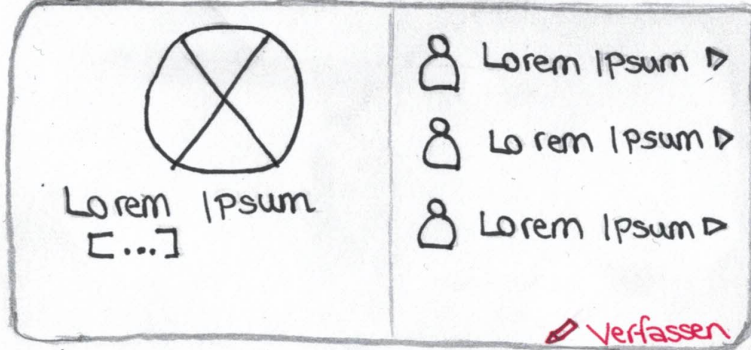 Lorem Ipsum
[...]
Lorem Ipsum
Lorem Ipsum
Lorem Ipsum
Verfassen